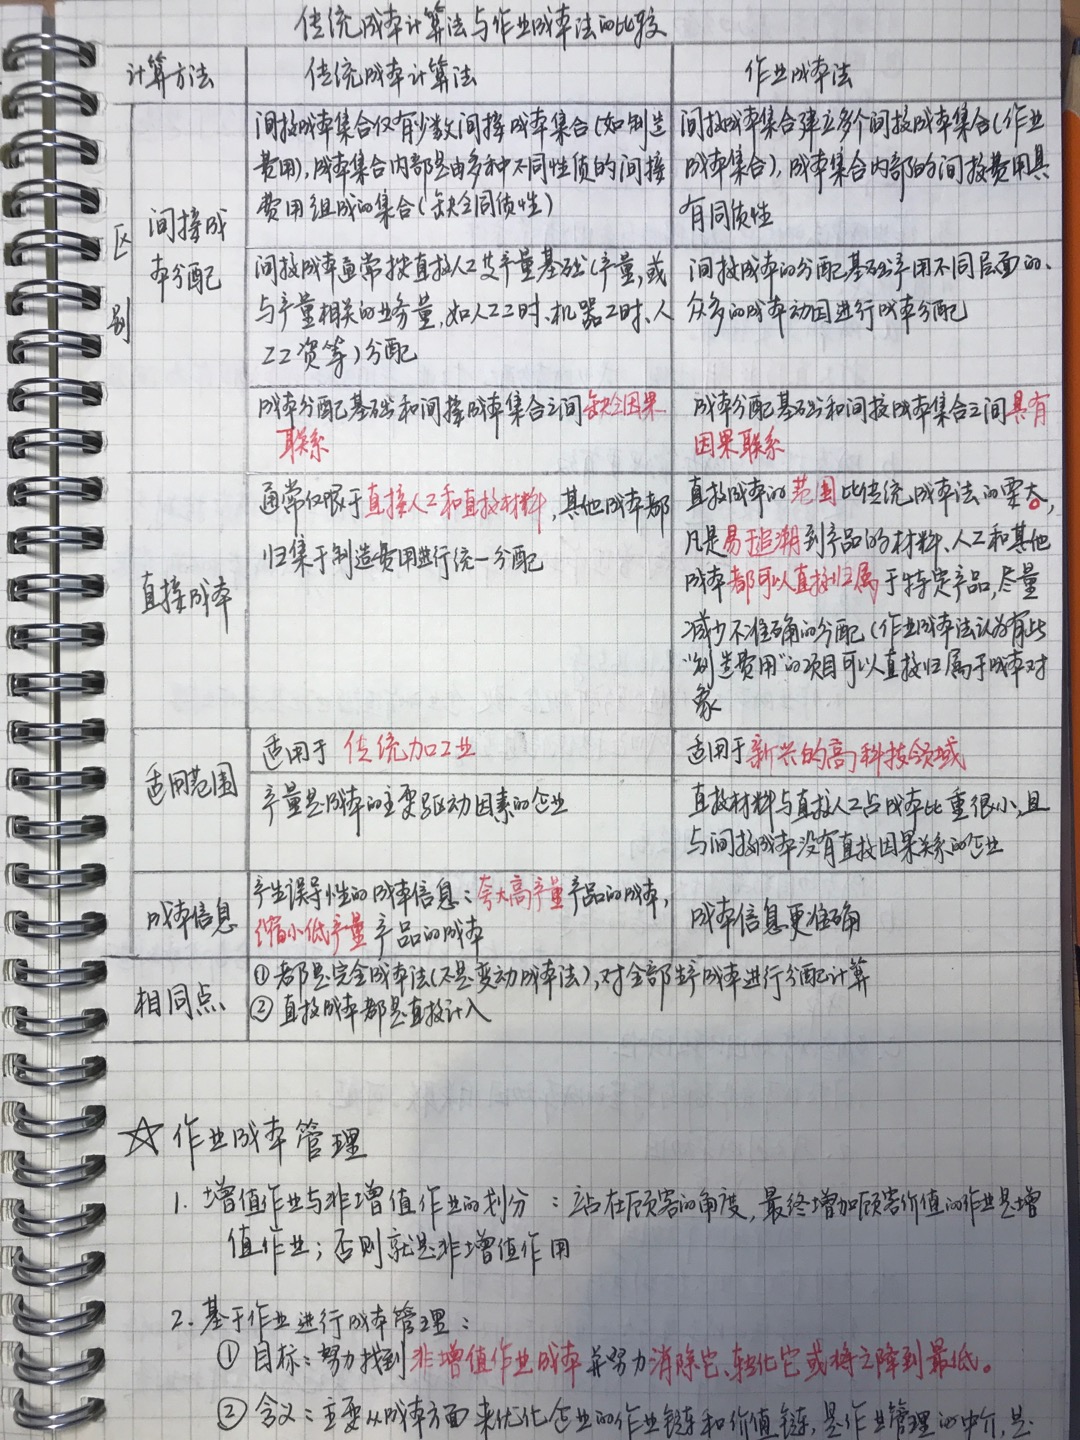 传统成本计算法与作业成本法的比较
计算方法 传统成本计算法 作业成本法
区别
间接成本分配
间接成本集合仅有少数间接成本集合(如制造
费用),成本集合内部是由多种不同性质的间接
费用组成的集合(缺乏同质性)
间接成本集合建立多个间接成本集合(作业
成本集合),成本集合内部的间接费用具
有同质性
间接成本通常按直接人工及产量基础(产量,或
与产量相关的业务量,如人工工时、机器工时、人
工工资等)分配
间接成本的分配基础采用不同层面的、
众多的成本动因进行成本分配
成本分配基础和间接成本集合之间缺乏因果
联系
成本分配基础和间接成本集合之间具有
因果联系
直接成本
通常仅限于直接人工和直接材料,其他成本都
归集于制造费用进行统一分配
直接成本的范围比传统成本法的要大,
凡是易于追溯到产品的材料、人工和其他
成本都可以直接归属于特定产品,尽量
减少不准确的分配(作业成本法认为有些
“制造费用”的项目可以直接归属于成本对
象
适用范围
适用于 传统加工业
适用于新兴的高科技领域
产量是成本的主要驱动因素的企业
直接材料与直接人工占成本比重很小,且
与间接成本没有直接因果关系的企业
成本信息
产生误导性的成本信息:夸大高产量产品的成本,
缩小低产量产品的成本
成本信息更准确
相同点
①都是完全成本法(不是变动成本法),对全部生产成本进行分配计算
②直接成本都是直接计入
☆作业成本管理
1. 增值作业与非增值作业的划分:站在顾客的角度,最终增加顾客价值的作业是增
值作业;否则就是非增值作用
2. 基于作业进行成本管理:
①目标:努力找到非增值作业成本并努力消除它、转化它或将之降到最低。
②含义:主要从成本方面来优化企业的作业链和价值链,是作业管理的中介,是